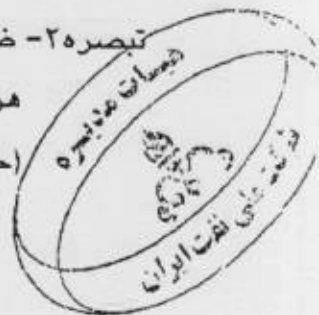 تبصره۲- ض
هر
(ح
هیئات مدیره
شرکت ملی نفت ایران